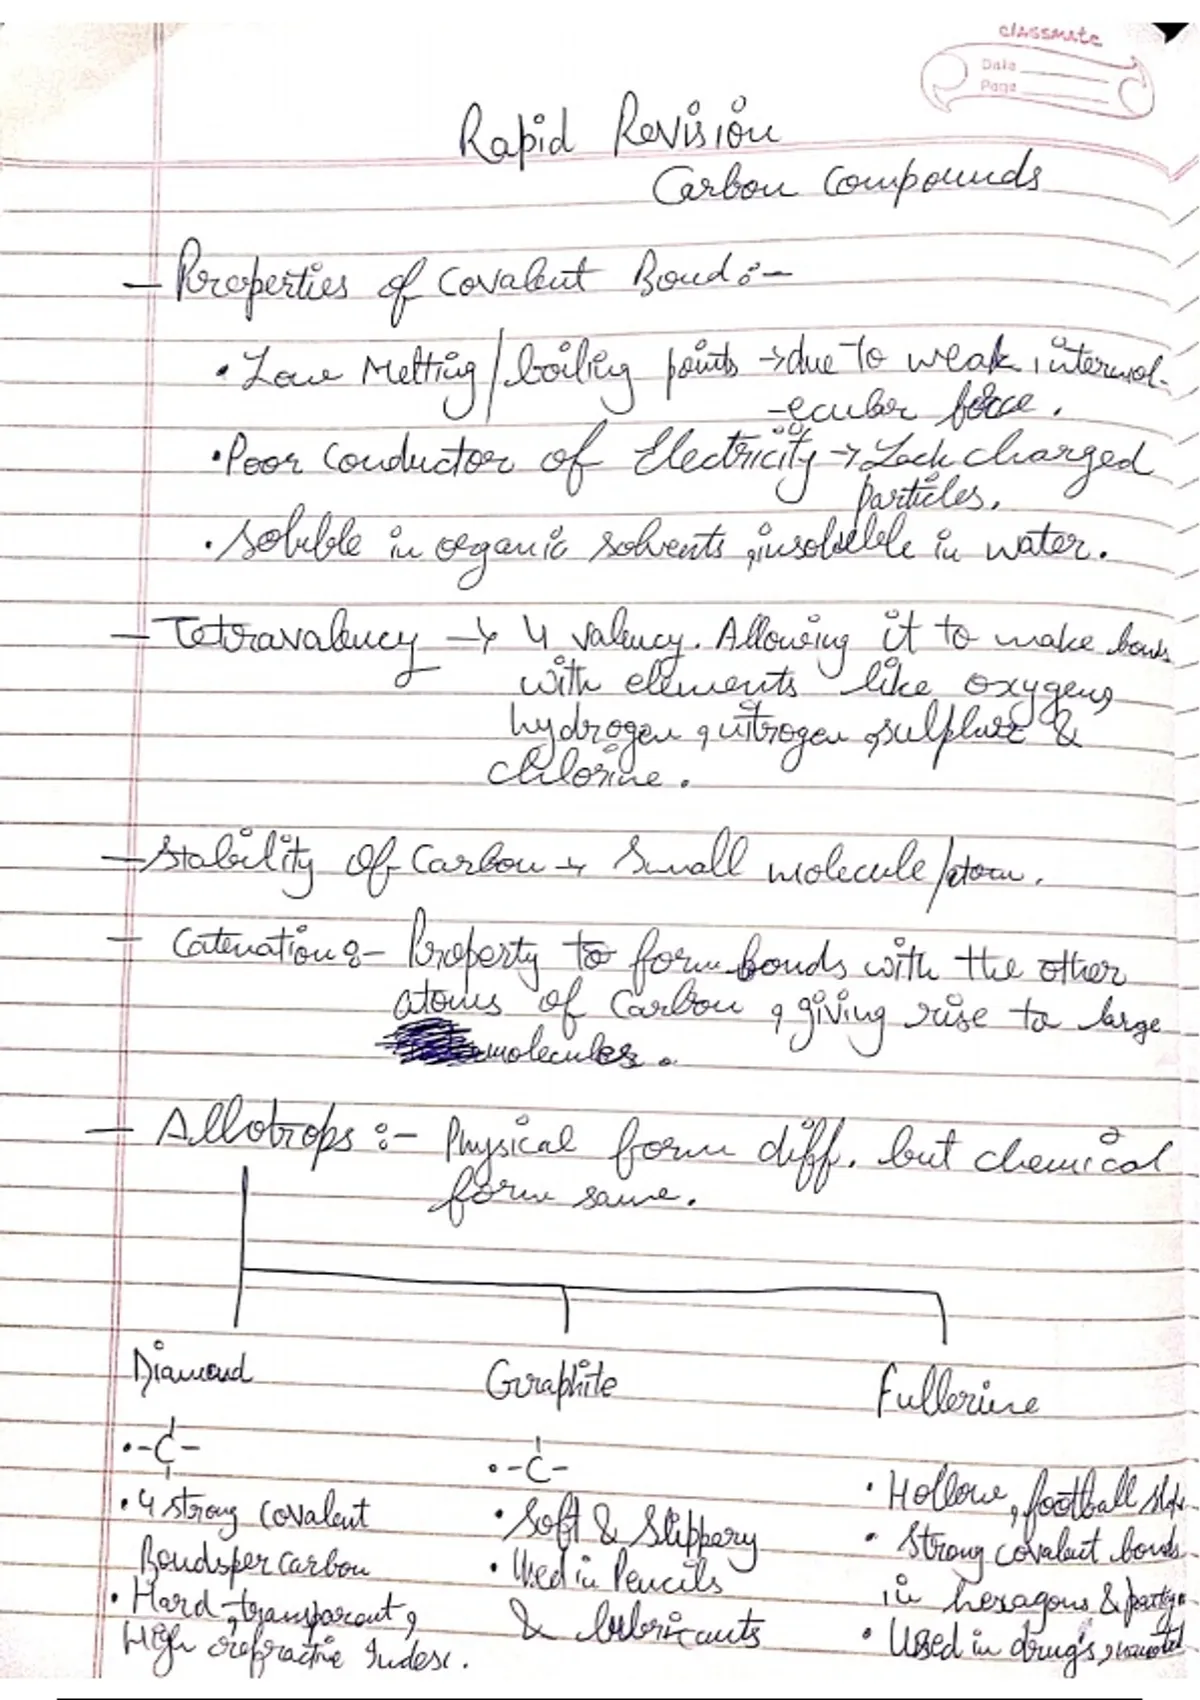 classmate
Date
Page
Rapid Revision
Carbon Compounds
– Properties of Covalent Bond :–
• Low Melting / boiling points → due to weak intermol-
-ecular force.
• Poor Conductor of Electricity → Lack charged
particles.
• Soluble in organic solvents, insoluble in water.
– Tetravalency → 4 valency. Allowing it to make bonds
with elements like oxygen,
hydrogen, nitrogen, sulphur &
chlorine.
– Stability of Carbon → Small molecule/atom.
– Catenation :– Property to form bonds with the other
atoms of Carbon, giving rise to large
molecules.
– Allotrops :– Physical form diff. but chemical
form same.
Diamond Graphite Fullerine
• –C– • –C– • Hollow, football
• 4 strong Covalent • Soft & Slippery • Strong covalent bonds
Bonds per carbon • Used in Pencils in hexagons &
• Hard, transparent, & lubricants • Used in drug's,
High refractive Index.